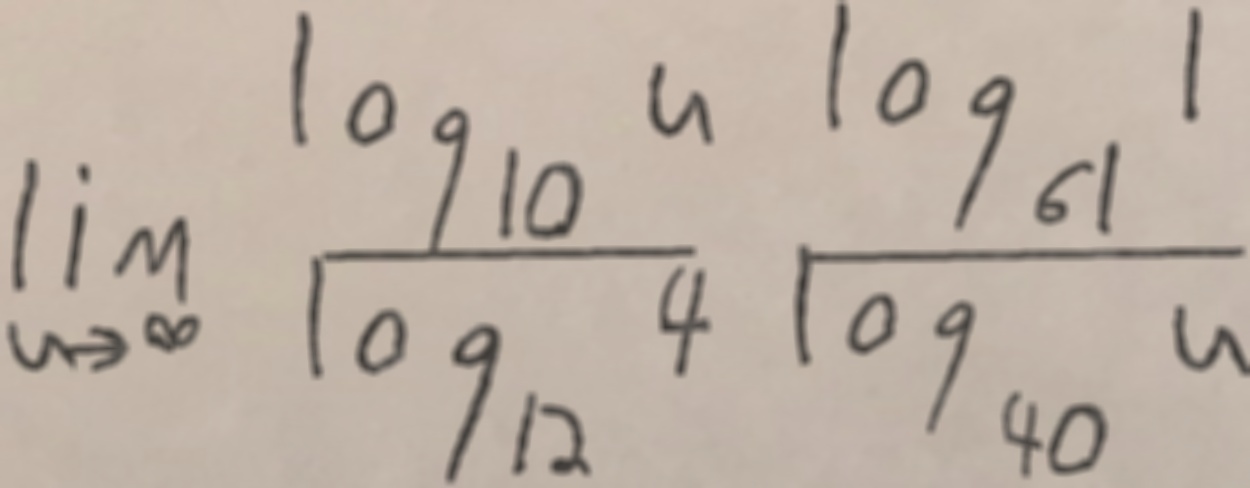 lim n→∞ log₁₀ n / log₁₂ 4 log₆₁ 1 / log₄₀ n